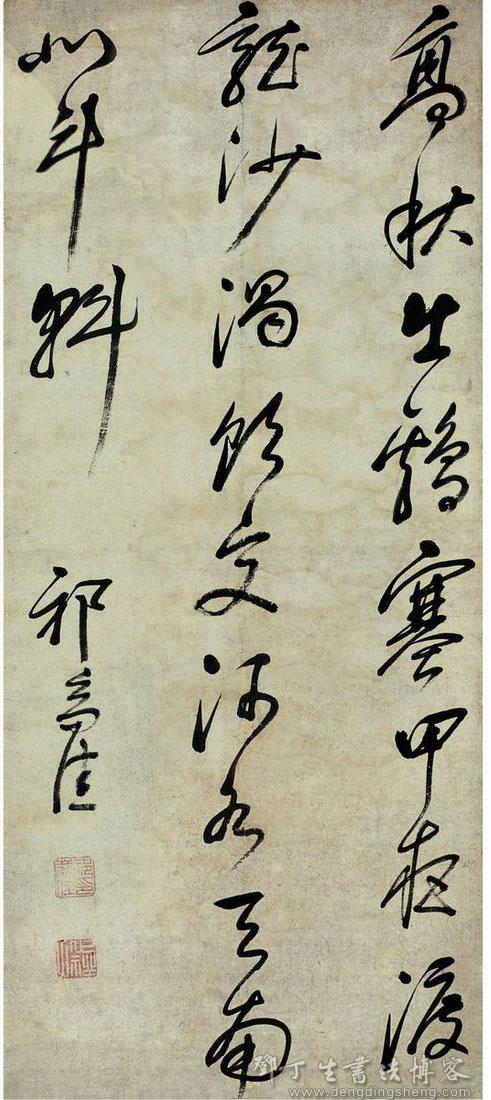 高秋出鷄塞甲夜渡
龍沙渴飲交河水天南
北斗斜
祁豸佳
鄧丁生書法博客
www.dengdingsheng.com